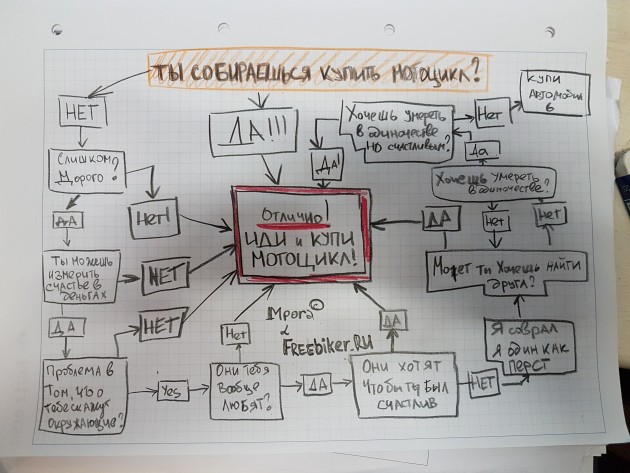 ТЫ СОБИРАЕШЬСЯ КУПИТЬ МОТОЦИКЛ?
НЕТ
ДА!!!
Хочешь умереть
в одиночестве
но счастливым?
Нет
КУПИ
АВТОМОБИЛ
Ь
ДА!
Да
Слишком
Дорого?
Хочешь умереть
в одиночестве?
ДА
Нет!
ОТЛИЧНО!
ИДИ и КУПИ
МОТОЦИКЛ!
ДА
Нет
Нет
Ты можешь
измерить
счастье в
деньгах
НЕТ
Может ты хочешь найти
друга?
ДА
НЕТ
Нет
Мрога ©
FREEBIKER.RU
ДА
Я соврал
Я один как
перст
Проблема в
том, что о
тебе скажут
окружающие?
Yes
Они тебя
вообще
любят?
ДА
Они хотят
чтобы ты был
счастлив
НЕТ